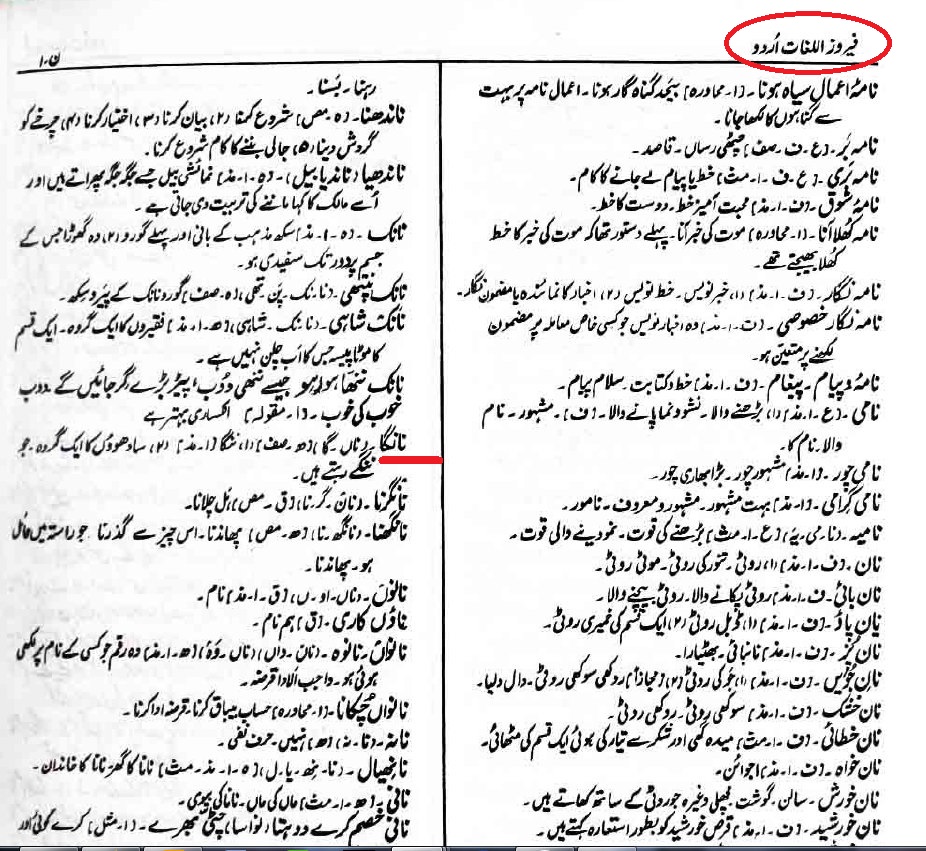 فیروز اللغات اُردو
ن-۱
نامۂ اعمال سیاہ ہونا۔ (ا۔ محاورہ) بیحد گناہ گار ہونا۔ اعمال نامہ پر بہت
سے گناہوں کا لکھا جانا۔
نامہ بَر۔ (ع۔ ف۔ صف) چٹھی رساں۔ قاصد۔
نامہ بَری۔ (ع۔ ف۔ ا۔ مث) خط یا پیام لے جانے کا کام۔
نامۂ شوق۔ (ف۔ ا۔ مذ) محبت آمیز خط۔ دوست کا خط۔
نامہ کُھلا آنا۔ (ا۔ محاورہ) موت کی خبر آنا۔ پہلے دستور تھا کہ موت کی خبر کا خط
کُھلا بھیجتے تھے۔
نامہ نگار۔ (ف۔ ا۔ مذ) (۱) خبر نویس۔ خط نویس (۲) اخبار کا نمائندہ یا مضمون نگار۔
نامہ نگار خصوصی۔ (ف۔ ا۔ مذ) وہ اخبار نویس جو کسی خاص معاملہ پر مضمون
لکھنے پر متعین ہو۔
نامہ و پیام۔ پیغام۔ (ف۔ ا۔ مذ) خط و کتابت۔ سلام پیام۔
نامی۔ (ع۔ ا۔ مذ) (۱) بڑھنے والا۔ نشو و نما پانے والا۔ (ف)۔ مشہور۔ نام
والا۔ نام کا۔
نامی چور۔ (ا۔ مذ) مشہور چور۔ بڑا بھاری چور۔
نامی گرامی۔ (ا۔ مذ) بہت مشہور۔ مشہور و معروف۔ نامور۔
نامیہ۔ (نا۔ می۔ یہ) (ع۔ ا۔ مث) بڑھنے کی قوت۔ نمو دینے والی قوت۔
نان۔ (ف۔ ا۔ مذ) (۱) روٹی۔ تنور کی روٹی۔ موٹی روٹی۔
نان بائی۔ ف۔ ا۔ مذ) روٹی پکانے والا۔ روٹی بیچنے والا۔
نان پاؤ۔ (ف۔ ا۔ مذ) (۱) ڈبل روٹی (۲) ایک قسم کی خمیری روٹی۔
نان پَز۔ (ف۔ ا۔ مذ) نانبائی۔ بھٹیارا۔
نانِ جَویں۔ (ف۔ ا۔ مذ) (۱) جَو کی روٹی (۲) (مجازاً) روکھی سوکھی روٹی۔ دال دلیا۔
نان خشک۔ (ف۔ ا۔ مذ) سوکھی روٹی۔ روکھی روٹی۔
نان خطائی۔ (ف۔ ا۔ مث) میدہ گھی اور شکر سے تیار کی ہوئی ایک قسم کی مٹھائی۔
نان خواہ۔ (ف۔ ا۔ مذ) اجوائن۔
نان خورش۔ سالن۔ گوشت۔ مچھلی وغیرہ جو روٹی کے ساتھ کھاتے ہیں۔
نان خورشید۔ (ف۔ ا۔ مذ) قرص خورشید کو بطور استعارہ کہتے ہیں۔
رہنا۔ بَسنا۔
ناندھنا۔ (ہ۔ مص) شروع کرنا (۲) بیان کرنا (۳) اختیار کرنا (۴) چرخے کو
گردش دینا (۵) جالی بننے کا کام شروع کرنا۔
ناندھیا (ناندیا بیل)۔ (ہ۔ ا۔ مذ) نمائشی بیل جسے جگہ جگہ پھراتے ہیں اور
اُسے مالک کا کہا ماننے کی تربیت دی جاتی ہے۔
نانک۔ (ہ۔ ا۔ مذ) سکھ مذہب کے بانی اور پہلے گورو (۲) وہ گھوڑا جس کے
جسم پر دور تک سفیدی ہو۔
نانک پنتھی۔ (نا۔ نک۔ پَن۔ تھی) (ہ۔ صف) گورو نانک کے پیرو سکھ۔
نانک شاہی۔ (نا۔ نک۔ شاہی) (ھ۔ ا۔ مذ) فقیروں کا ایک گروہ۔ ایک قسم
کا موٹا پیسہ جس کا اب چلن نہیں ہے۔
نانک ننھا ہو رہو جیسے ننھی دُوب، پیڑ بڑے گر جائیں گے دوب
خوب کی خوب۔ (ا۔ مقولہ) انکساری بہتر ہے
نانگا۔ (ناں۔ گا) (ھ۔ صف) (۱) ننگا (ا۔ مذ) (۲) سادھوؤں کا ایک گروہ۔ جو
ننگے رہتے ہیں۔
نانگرنا۔ (نان۔ گر۔ نا) (ق۔ مص) ہَل چلانا۔
نانگھنا۔ (نانگھ۔ نا) (ھ۔ مص) پھاندنا۔ اس چیز سے گذرنا جو راستہ میں حائل
ہو۔ پھاندنا۔
نانوں۔ (ناں۔ او۔ ں) (ق۔ ا۔ مذ) نام۔
ناؤں کاری۔ (ق) ہم نام۔
نانواں۔ نانوہ۔ (نان۔ واں) (ناں۔ وَہ) (ھ۔ ا۔ مذ) وہ رقم جو کسی کے نام پر لکھی
ہوئی ہو۔ واجب الادا قرضہ۔
نانواں چُکانا۔ (ا۔ محاورہ) حساب بیباق کرنا۔ قرضہ ادا کرنا۔
نانہ۔ (نا۔ نہ) (ھ) نہیں۔ حرف نفی۔
نانہیال۔ (نا۔ نھ۔ یا۔ ل) (ہ۔ ا۔ مذ۔ مث) نانا کا گھر۔ نانا کا خاندان۔
نانی۔ (ھ۔ ا۔ مث) ماں کی ماں۔ نانا کی بیوی۔
نانی خصم کرے دوہتا (نواسا) چٹی بھرے۔ (ا۔ مثل) کرے کوئی اور